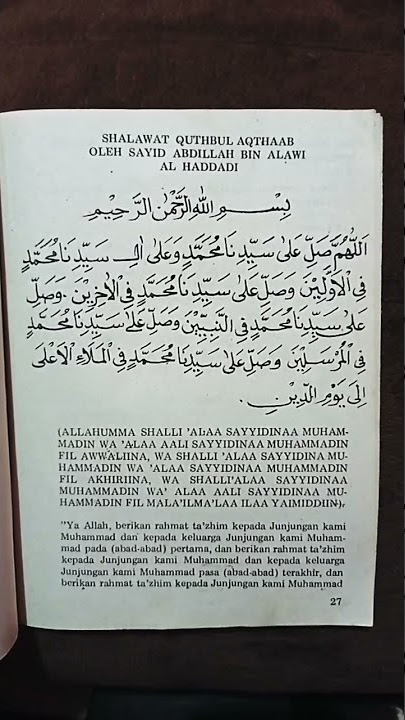 SHALAWAT QUTHBUL AQTHAAB
OLEH SAYID ABDILLAH BIN ALAWI
AL HADDADI
بِسْمِ اللهِ الرَّحْمٰنِ الرَّحِيْمِ
اَللّٰهُمَّ صَلِّ عَلٰى سَيِّدِنَا مُحَمَّدٍ وَعَلٰى اٰلِ سَيِّدِنَا مُحَمَّدٍ
فِى الْاَوَّلِيْنَ وَصَلِّ عَلٰى سَيِّدِنَا مُحَمَّدٍ فِى الْاٰخِرِيْنَ . وَصَلِّ
عَلٰى سَيِّدِنَا مُحَمَّدٍ فِى النَّبِيِّيْنَ وَصَلِّ عَلٰى سَيِّدِنَا مُحَمَّدٍ
فِى الْمُرْسَلِيْنَ وَصَلِّ عَلٰى سَيِّدِنَا مُحَمَّدٍ فِى الْمَلَاءِ الْاَعْلٰى
اِلٰى يَوْمِ الدِّيْنِ .
(ALLAHUMMA SHALLI 'ALAA SAYYIDINAA MUHAM-
MADIN WA 'ALAA AALI SAYYIDINAA MUHAMMADIN
FIL AWWALIINA, WA SHALLI 'ALAA SAYYIDINA MU-
HAMMADIN WA 'ALAA SAYYIDINAA MUHAMMADIN
FIL AKHIRIINA, WA SHALLI'ALAA SAYYIDINAA
MUHAMMADIN WA' ALAA AALI SAYYIDINAA MU-
HAMMADIN FIL MALA'ILMA'LAA ILAA YAIMIDDIIN).
"Ya Allah, berikan rahmat ta'zhim kepada Junjungan kami
Muhammad dan kepada keluarga Junjungan kami Muham-
mad pada (abad-abad) pertama, dan berikan rahmat ta'zhim
kepada Junjungan kami Muhammad dan kepada keluarga
Junjungan kami Muhammad pasa (abad-abad) terakhir, dan
berikan rahmat ta'zhim kepada Junjungan kami Muhammad
27